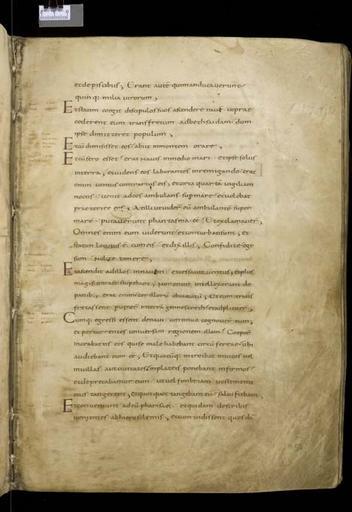 et de piscibus; Erant aute qui manducaverunt
quinq; milia virorum;
Et statim coegit discipulos suos ascendere navē ut prae
cederent eum trans fretum ad bethsaidam dum
ipse dimitteret populum;
Et cū dimisisset eos abiit in montem orare;
Et cū sero esset erat navis in medio mari et ipse solus
in terra; et videns eos laborantes in remigando erat
enim ventus contrarius eis; et circa quartā vigiliam
noctis venit ad eos ambulans supra mare et volebat
praeterire eos; At illi ut viderunt eū ambulantē super
mare putaverunt phantasma eē et exclamaver̄;
Omnes enim eum viderunt et conturbati sunt; et
statim locutus ē cum eis et dixit illis; Confidite ego
sum nolite timere;
Et ascendit ad illos in navim et cessavit ventus; et plus
magis intra se stupebant; non enim intellexerant de
panib; erat enim cor illorū obcecatū; Et cum trans
fretassent
Cumq; egressi essent de navi continuo cognoverunt eum
et percurrentes universam regionem illam coeperunt
in grabatis eos qui se male habebant circūferre ubi
audiebant eum eē; Et quocūq; introibat in vicos vel
in villas aut civitates in plateis ponebant infirmos
et deprecabantur eum ut vel fimbriam vestimenti
eius tangerent; et quotquot tangebant eū salvi fiebant
Et conveniunt ad eū pharisaei et quidam de scribis
venientes ab hierosolimis; et cum vidissent quosdā